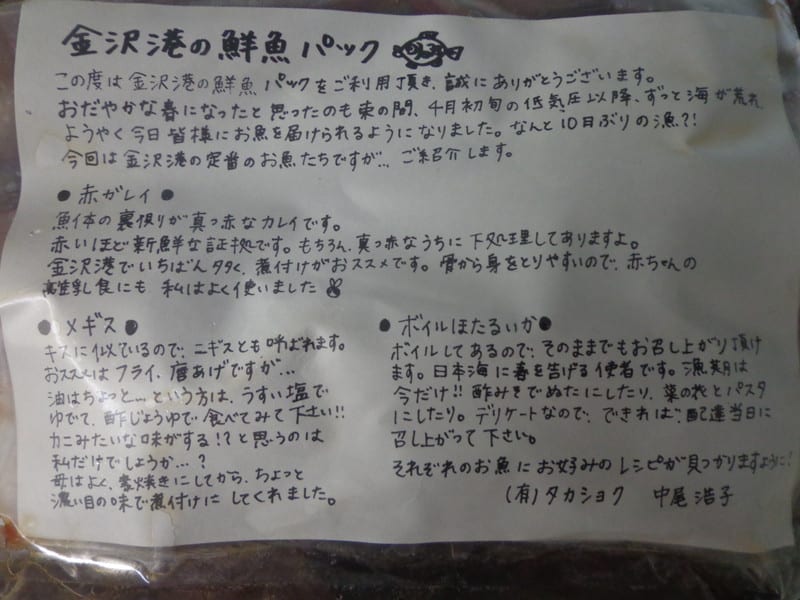 金沢港の鮮魚パック
この度は金沢港の鮮魚パックをご利用頂き、誠にありがとうございます。
おだやかな春になったと思ったのも束の間、4月初旬の低気圧以降、ずっと海が荒れ、
ようやく今日皆様にお魚を届けられるようになりました。なんと10日ぶりの漁?!
今回は金沢港の定番のお魚たちですが… ご紹介します。
● 赤がレイ ●
魚体の裏側が真っ赤なカレイです。
赤いほど新鮮な証拠です。もちろん、真っ赤なうちに下処理してありますよ。
金沢港でいちばん多く、煮付けがおススメです。骨から身をとりやすいので、赤ちゃんの
離乳食にも私はよく使いました
● メギス ●
キスに似ているので、ニギスとも呼ばれます。
おススメは フライ、唐あげですが…
油はちょっと…という方は、うすい塩で
ゆでて、酢じょうゆで食べてみて下さい!!
カニみたいな味がする!?と思うのは
私だけでしょうか…?
母はよく、素焼きにしてから、ちょっと
濃い目の味で煮付けにしてくれました。
● ボイルほたるいか ●
ボイルしてあるので、そのままでもお召し上がり頂け
ます。日本海に春を告げる使者です。漁期は
今だけ!! 酢みそでぬたにしたり、菜の花とパスタ
にしたり。デリケートなので、できれば、配達当日に
召し上がって下さい。
それぞれのお魚にお好みのレシピが見つかりますように!
(有)タカショク 中尾浩子